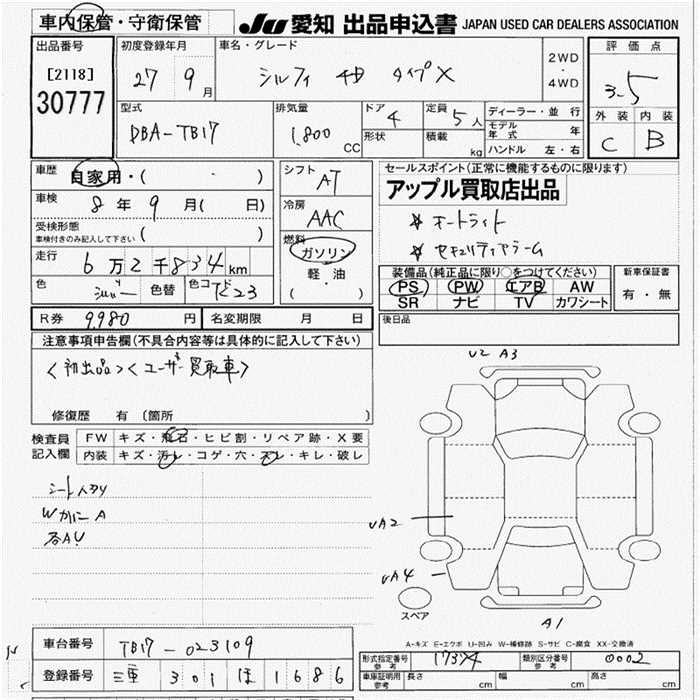 車内保管・守衛保管
JU 愛知 出品申込書 JAPAN USED CAR DEALERS ASSOCIATION
出品番号 初度登録年月 車名・グレード 2WD・4WD 評価点
[2118] 30777 27 9月 シルフィ タイプX 3.5
型式 DBA-TB17
排気量 1,800 CC
ドア 4
形状
定員 5人
積載 kg
ディーラー・並行
モデル年式 年
ハンドル 左・右
外装 内装
C B
車歴 自家用・( ・ )
車検 8年 9月( 日)
受検形態 ( )
車検付きのみ記入して下さい
走行 6万2千834km
色 シルバー 色替 色コード K23
シフト AT
冷房 AAC
燃料 ガソリン
軽・油
( ・ )
セールスポイント(正常に機能するものに限ります)
アップル買取店出品
※ オートライト
※ セキュリティアラーム
装備品(純正品に限り○をつけてください) 新車保証書
PS PW エアB AW 有・無
SR ナビ TV カワシート
R券 9,980 円 名変期限 月 日
後日品
注意事項申告欄(不具合内容等は具体的に記入して下さい)
<初出品><ユーザー買取車>
修復歴 有 (箇所 )
検査員記入欄
FW キズ・飛石・ヒビ割・リペア跡・X要
内装 キズ・汚レ・コゲ・穴・スレ・キレ・破レ
Wカバー A
各AU
U2 A3
UA2
UA4
A1
スペア
A-キズ E-エクボ U-凹み W-補修跡 S-サビ C-腐食 XX-交換済
車台番号 TB17-023109
登録番号 三重 301 ほ 1686
形式指定番号 参考 17374 類別区分番号 参考 0002
車庫証明用 参考 長さ cm 幅 cm 高さ cm